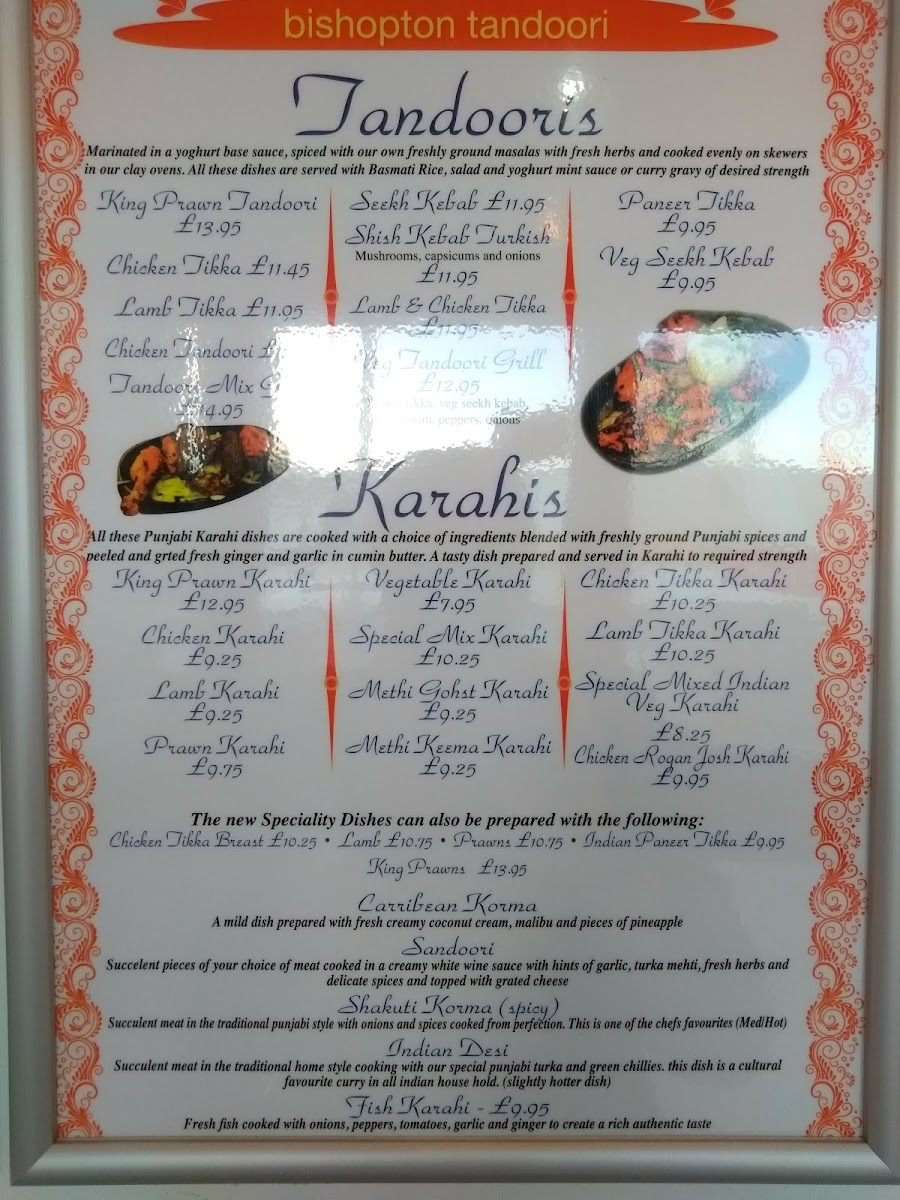 bishopton tandoori
Tandooris
Marinated in a yoghurt base sauce, spiced with our own freshly ground masalas with fresh herbs and cooked evenly on skewers
in our clay ovens. All these dishes are served with Basmati Rice, salad and yoghurt mint sauce or curry gravy of desired strength
King Prawn Tandoori
£13.95
Chicken Tikka £11.45
Lamb Tikka £11.95
Chicken Tandoori
Tandoori Mix
£14.95
Seekh Kebab £11.95
Shish Kebab Turkish
Mushrooms, capsicums and onions
£11.95
Lamb & Chicken Tikka
£11.95
Veg Tandoori Grill
£12.95
tikka, veg seekh kebab,
peppers, onions
Paneer Tikka
£9.95
Veg Seekh Kebab
£9.95
Karahis
All these Punjabi Karahi dishes are cooked with a choice of ingredients blended with freshly ground Punjabi spices and
peeled and grted fresh ginger and garlic in cumin butter. A tasty dish prepared and served in Karahi to required strength
King Prawn Karahi
£12.95
Chicken Karahi
£9.25
Lamb Karahi
£9.25
Prawn Karahi
£9.75
Vegetable Karahi
£7.95
Special Mix Karahi
£10.25
Methi Gohst Karahi
£9.25
Methi Keema Karahi
£9.25
Chicken Tikka Karahi
£10.25
Lamb Tikka Karahi
£10.25
Special Mixed Indian
Veg Karahi
£8.25
Chicken Rogan Josh Karahi
£9.95
The new Speciality Dishes can also be prepared with the following:
Chicken Tikka Breast £10.25 • Lamb £10.75 • Prawns £10.75 • Indian Paneer Tikka £9.95
King Prawns £13.95
Carribean Korma
A mild dish prepared with fresh creamy coconut cream, malibu and pieces of pineapple
Sandoori
Succelent pieces of your choice of meat cooked in a creamy white wine sauce with hints of garlic, turka mehti, fresh herbs and
delicate spices and topped with grated cheese
Shakuti Korma (spicy)
Succulent meat in the traditional punjabi style with onions and spices cooked from perfection. This is one of the chefs favourites (Med/Hot)
Indian Desi
Succulent meat in the traditional home style cooking with our special punjabi turka and green chillies. this dish is a cultural
favourite curry in all indian house hold. (slightly hotter dish)
Fish Karahi - £9.95
Fresh fish cooked with onions, peppers, tomatoes, garlic and ginger to create a rich authentic taste